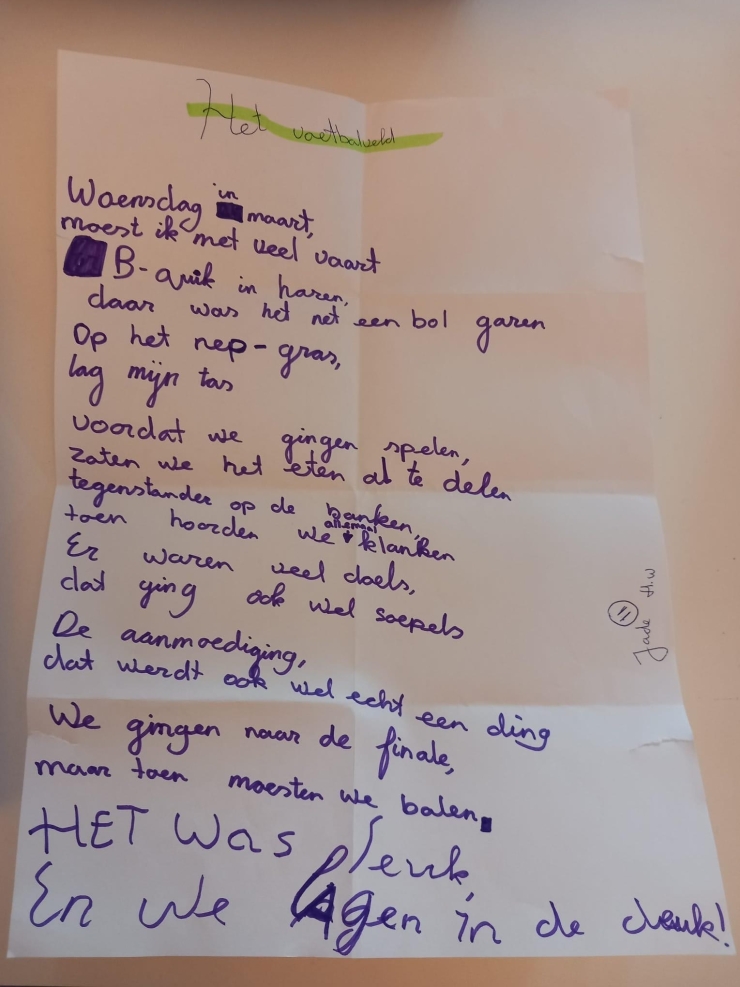 Het voetbalveld
Woensdag in maart,
moest ik met veel vaart
B-quik in haren,
daar was het net een bol garen
Op het nep-gras,
lag mijn tas
voordat we gingen spelen,
zaten we het eten al te delen
tegenstander op de banken,
toen hoorden we allemaal klanken
Er waren veel doels,
dat ging ook wel soepels
De aanmoediging,
dat werdt ook wel echt een ding
We gingen naar de finale,
maar toen moesten we balen.
HET was leuk,
En we lagen in de deuk!
Jade H.W
11